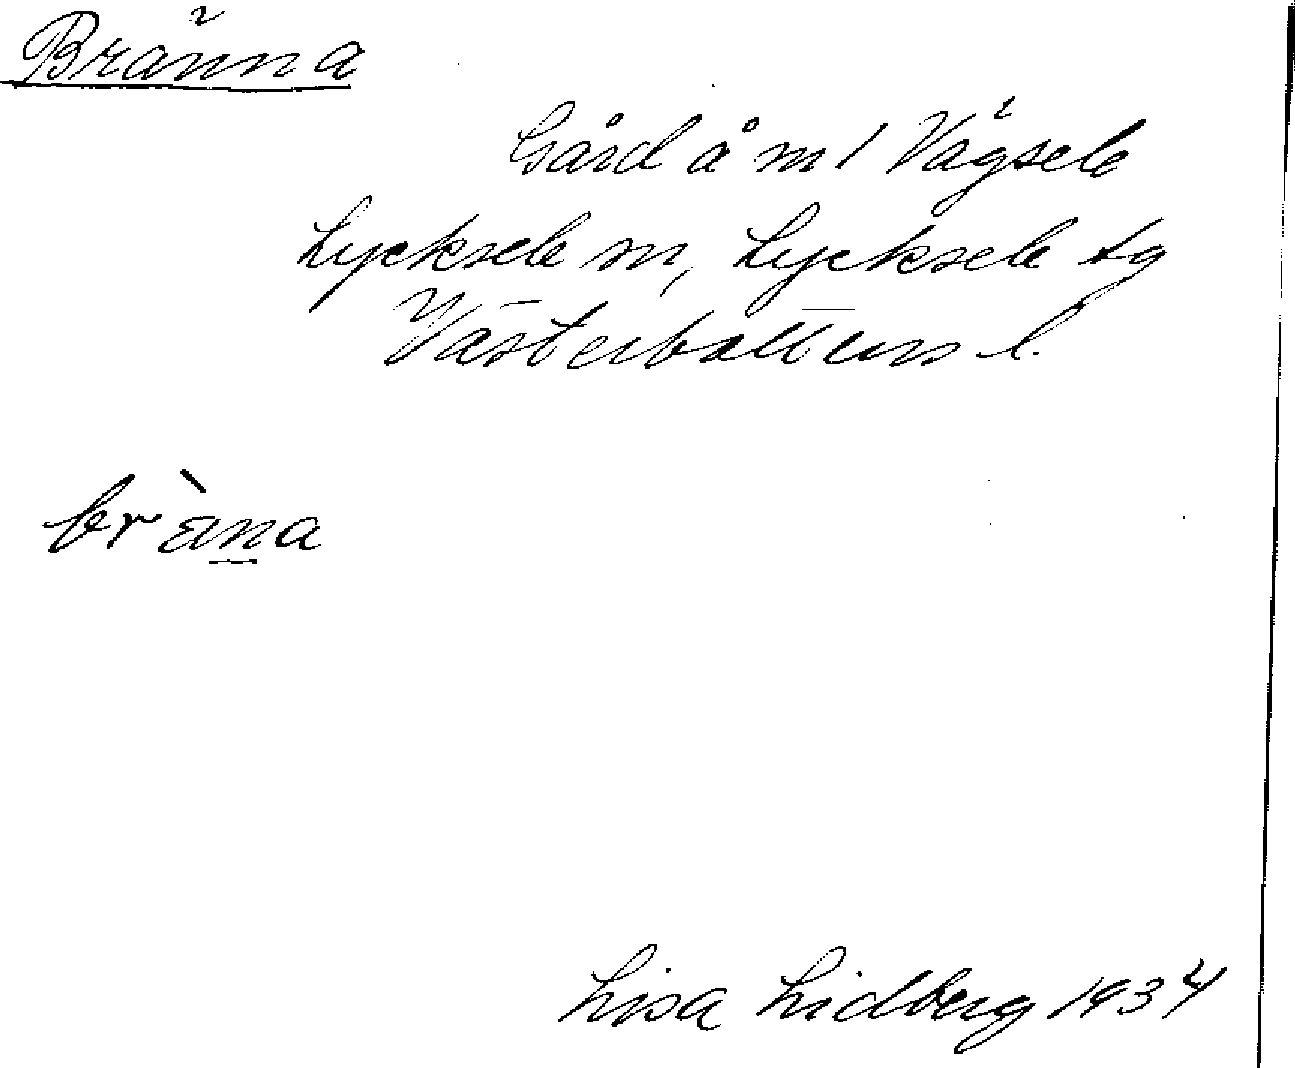 Bränna
Gård å n/ Vägsele
Lycksele sn, Lycksele tg
Västerbottens l.
bràna
Lisa Lidberg 1934